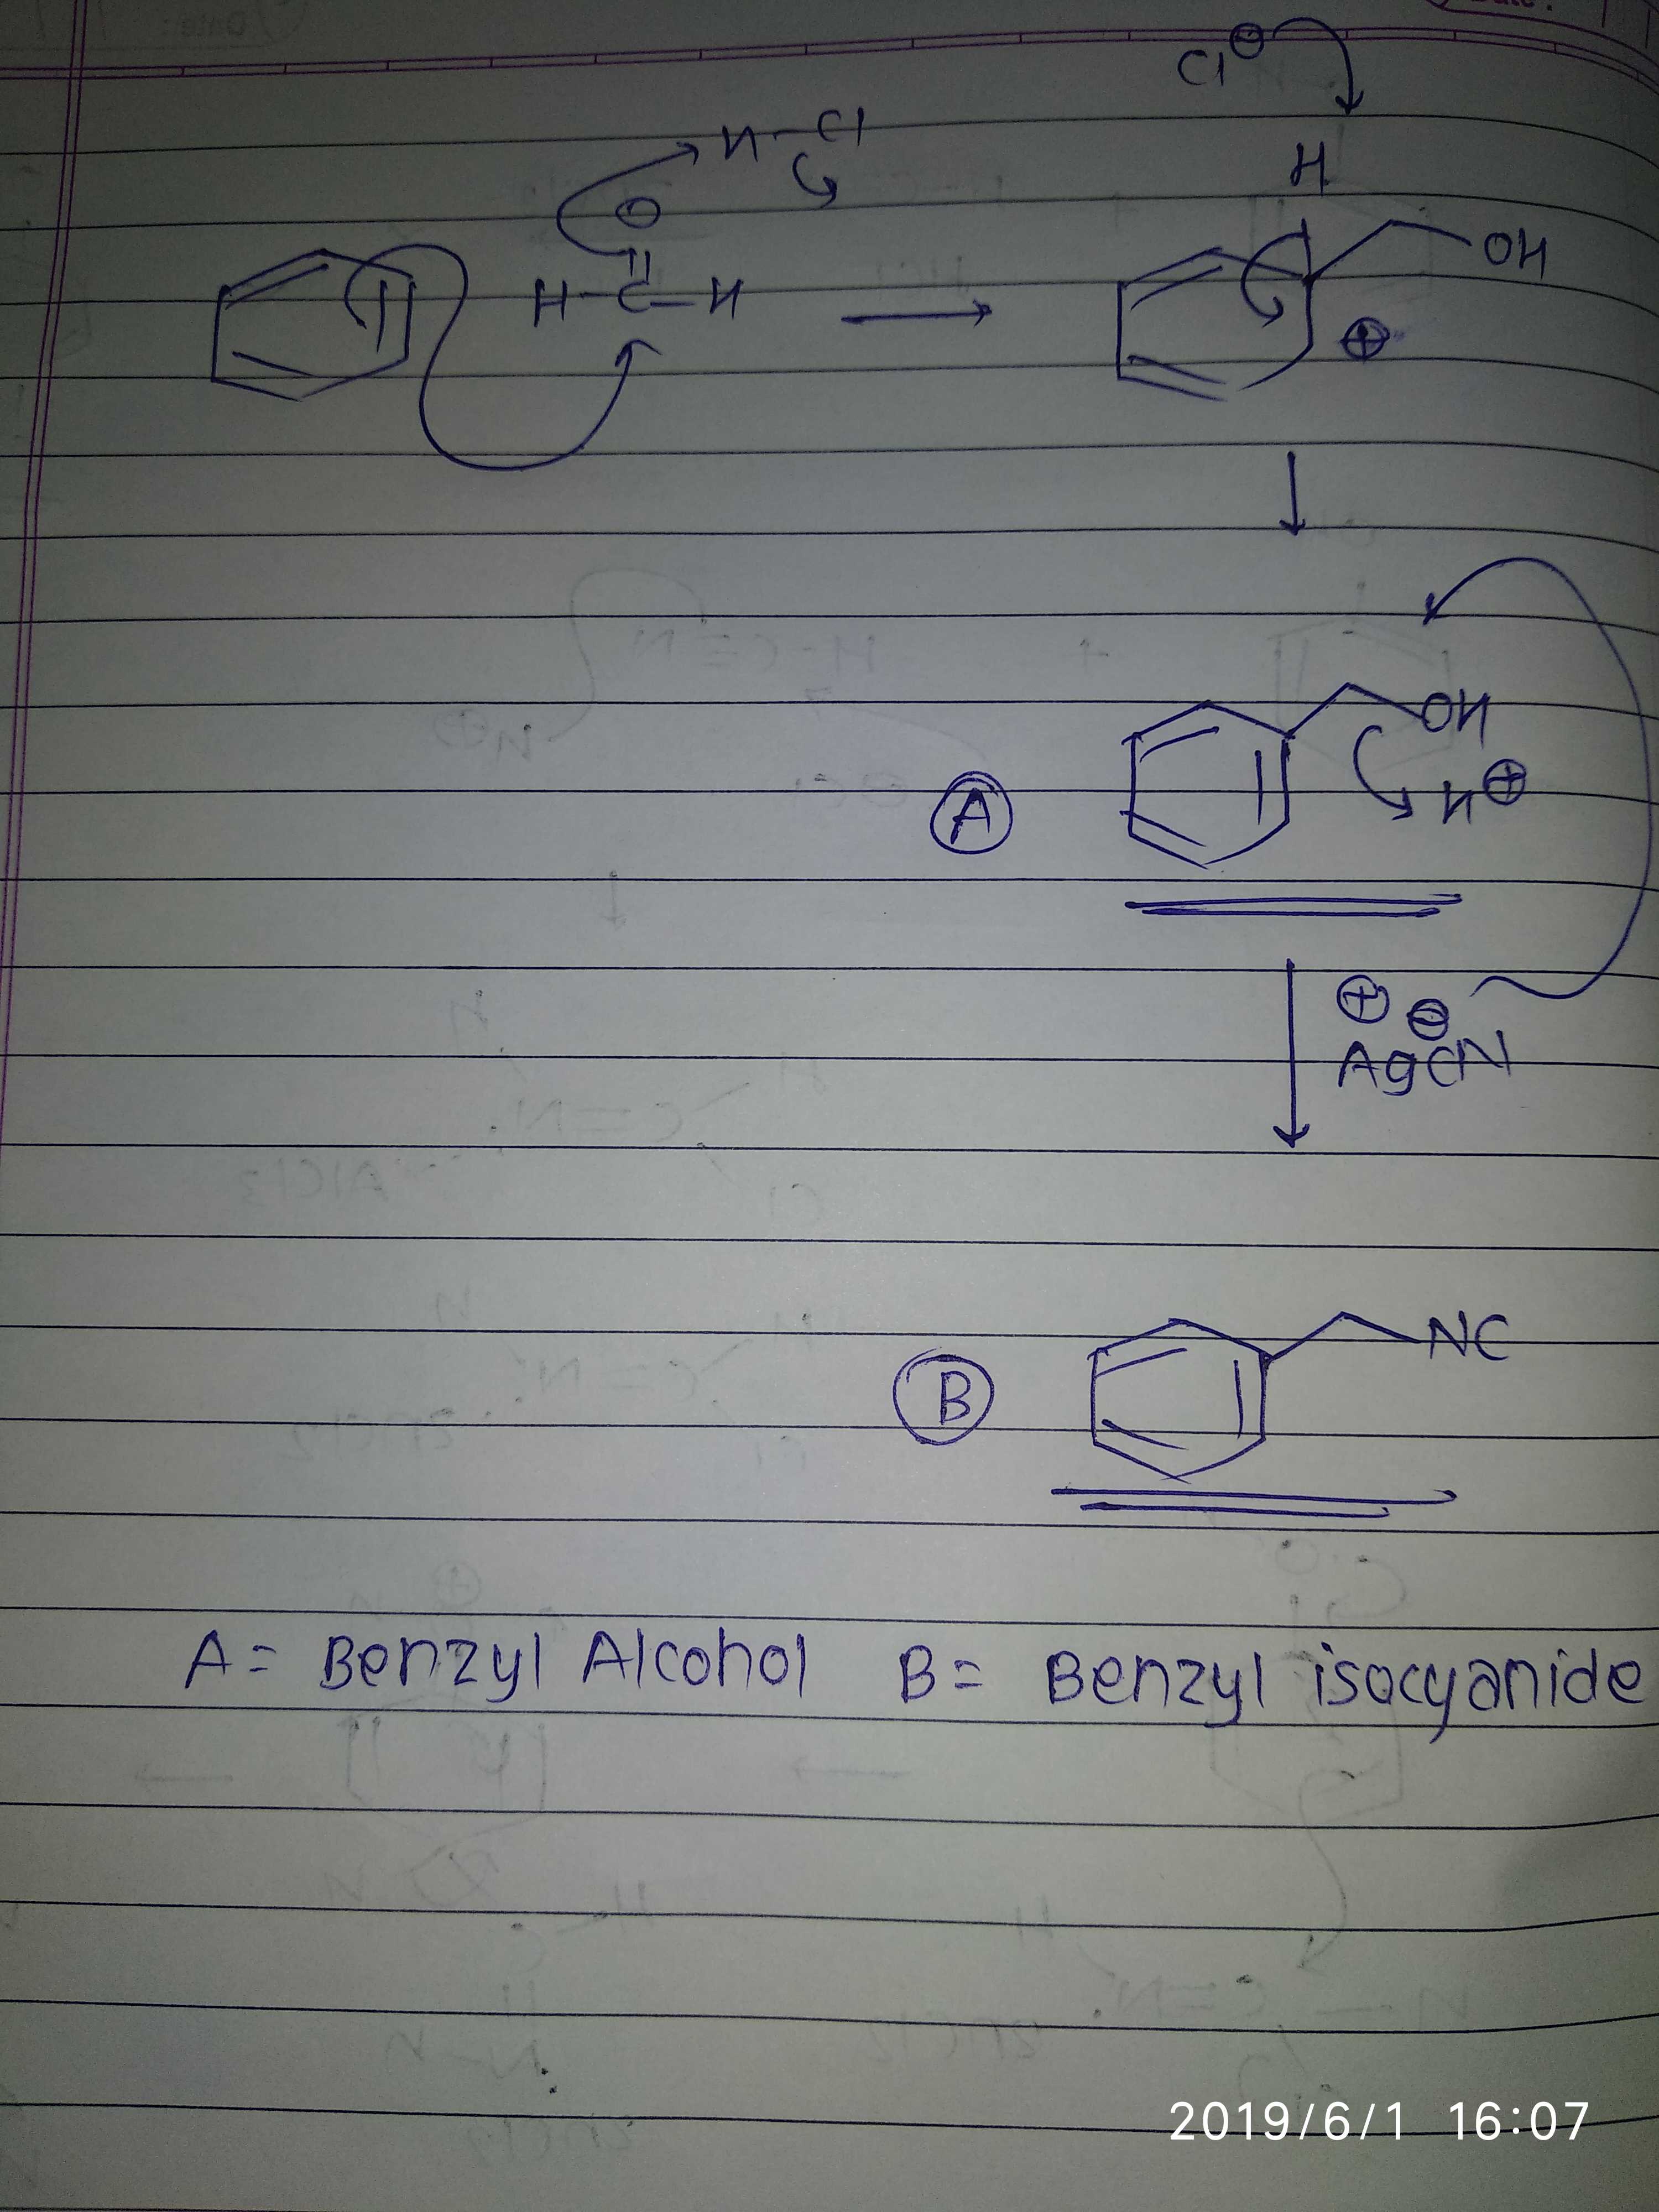 Cl⊖
H-Cl
O
H
H-C-H
OH
⊕
OH
H⊕
A
⊕ ⊖
AgCN
NC
B
A= Benzyl Alcohol B= Benzyl isocyanide
2019/6/1 16:07